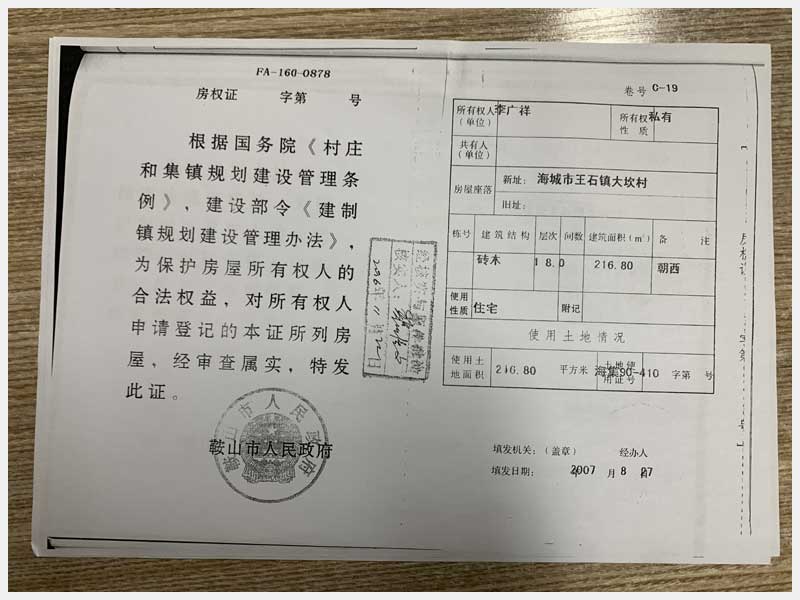 FA-160-0878
房权证 字第 号
根据国务院《村庄
和集镇规划建设管理条
例》，建设部令《建制
镇规划建设管理办法》，
为保护房屋所有权人的
合法权益，对所有权人
申请登记的本证所列房
屋，经审查属实，特发
此证。
鞍山市人民政府
鞍山市人民政府
卷号 C-19
所有权人（单位） 李广祥 所有权性质 私有
共有人（单位）
房屋座落 新址：海城市王石镇大坎村
旧址：
栋号 建筑结构 层次 间数 建筑面积(㎡) 备注
砖木 1 8.0 216.80 朝西
使用性质 住宅 附记
使用土地情况
使用土地面积 216.80 平方米 土地使用证号 海集90-410 字第 号
填发机关：（盖章） 经办人
填发日期： 2007 年 8 月 27